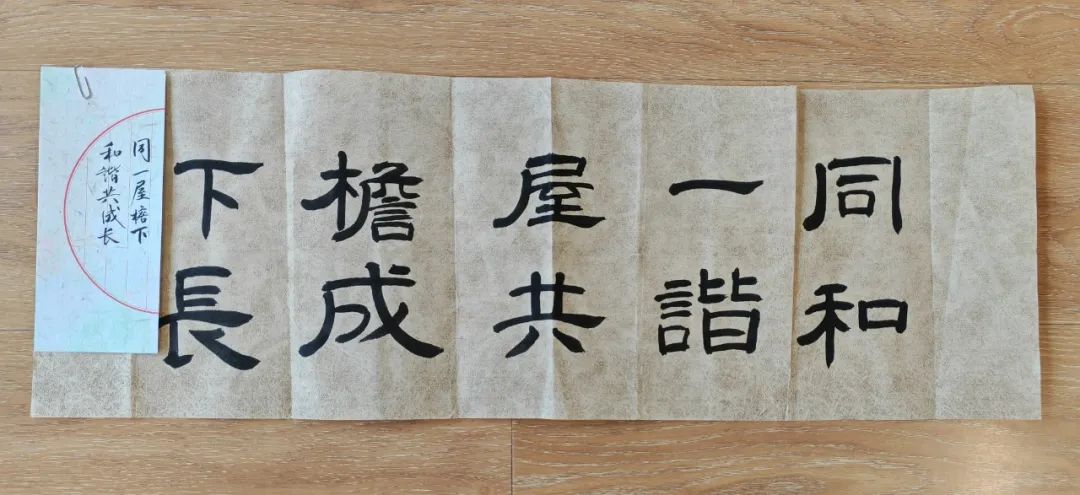 同一屋檐下
和諧共成長
同一屋檐下
和谐共成长